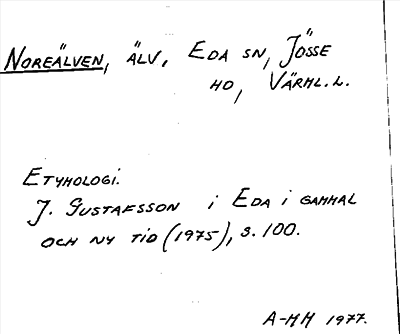 NOREÄLVEN, ÄLV, EDA SN, JÖSSE
HD, VÄRML.L.
ETYMOLOGI.
J. GUSTAFSSON i EDA i GAMMAL
OCH NY TID (1975), S. 100.
A-MH 1977.